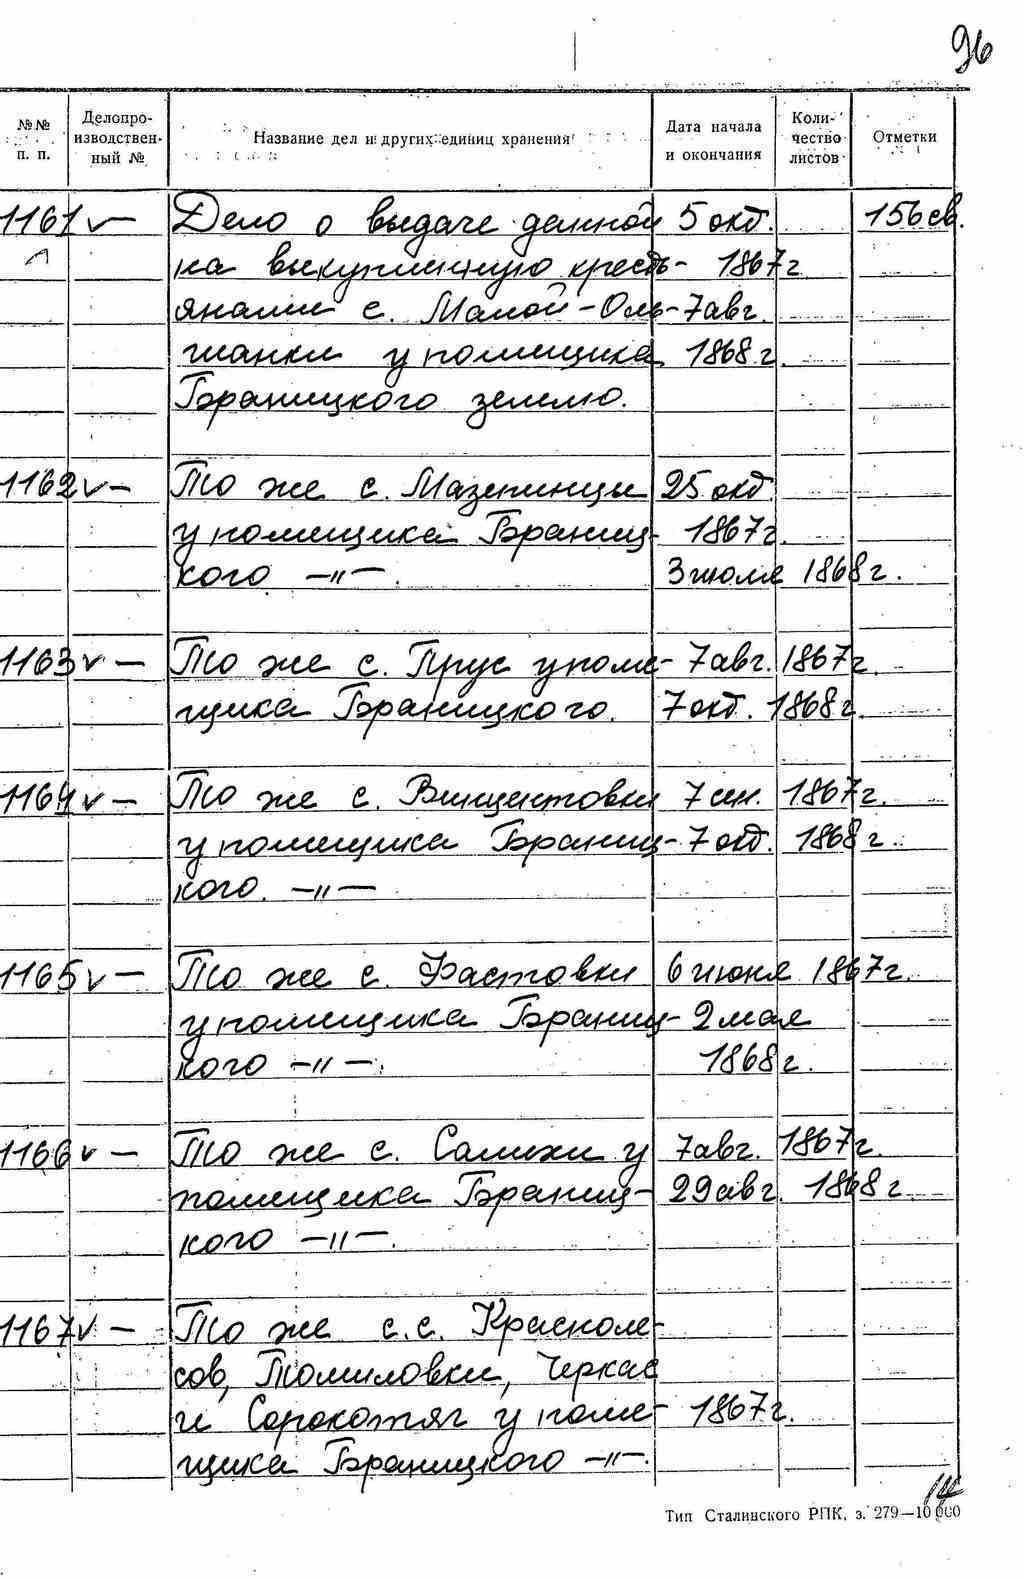 96
№№ п. п. Делопроизводствен-ный № Название дел и других единиц хранения Дата начала и окончания Коли-чество листов Отметки
1161 v — Дело о выдаче данной 5 окт. 156 св.
на выкупленную кресть- 1867 г
янами с. Малой-Оль- 7 авг.
шанки у помещика 1868 г.
Браницкого землю.
1162 v — То же с. Мазепинцы 25 окт.
у помещика Браниц- 1867 г.
кого —"—. 3 июля 1868 г.
1163 v — То же с. Прус у поме- 7 авг. 1867 г.
щика Браницкого. 7 окт. 1868 г.
1164 v — То же с. Винцентовки 7 сен. 1867 г.
у помещика Браниц- 7 окт. 1868 г.
кого. —"—
1165 v — То же с. Фастовки 6 июня 1867 г.
у помещика Браниц- 2 мая
кого —"—. 1868 г.
1166 v — То же с. Салихи у 7 авг. 1867 г.
помещика Браниц- 29 авг. 1868 г.
кого —"—.
1167 v — То же с.с. Красноле-
сов, Томиловки, Черкас
и Сорокотяг у поме- 1867 г.
щика Браницкого —"—.
14
Тип Сталинского РПК, з. 279—10 000